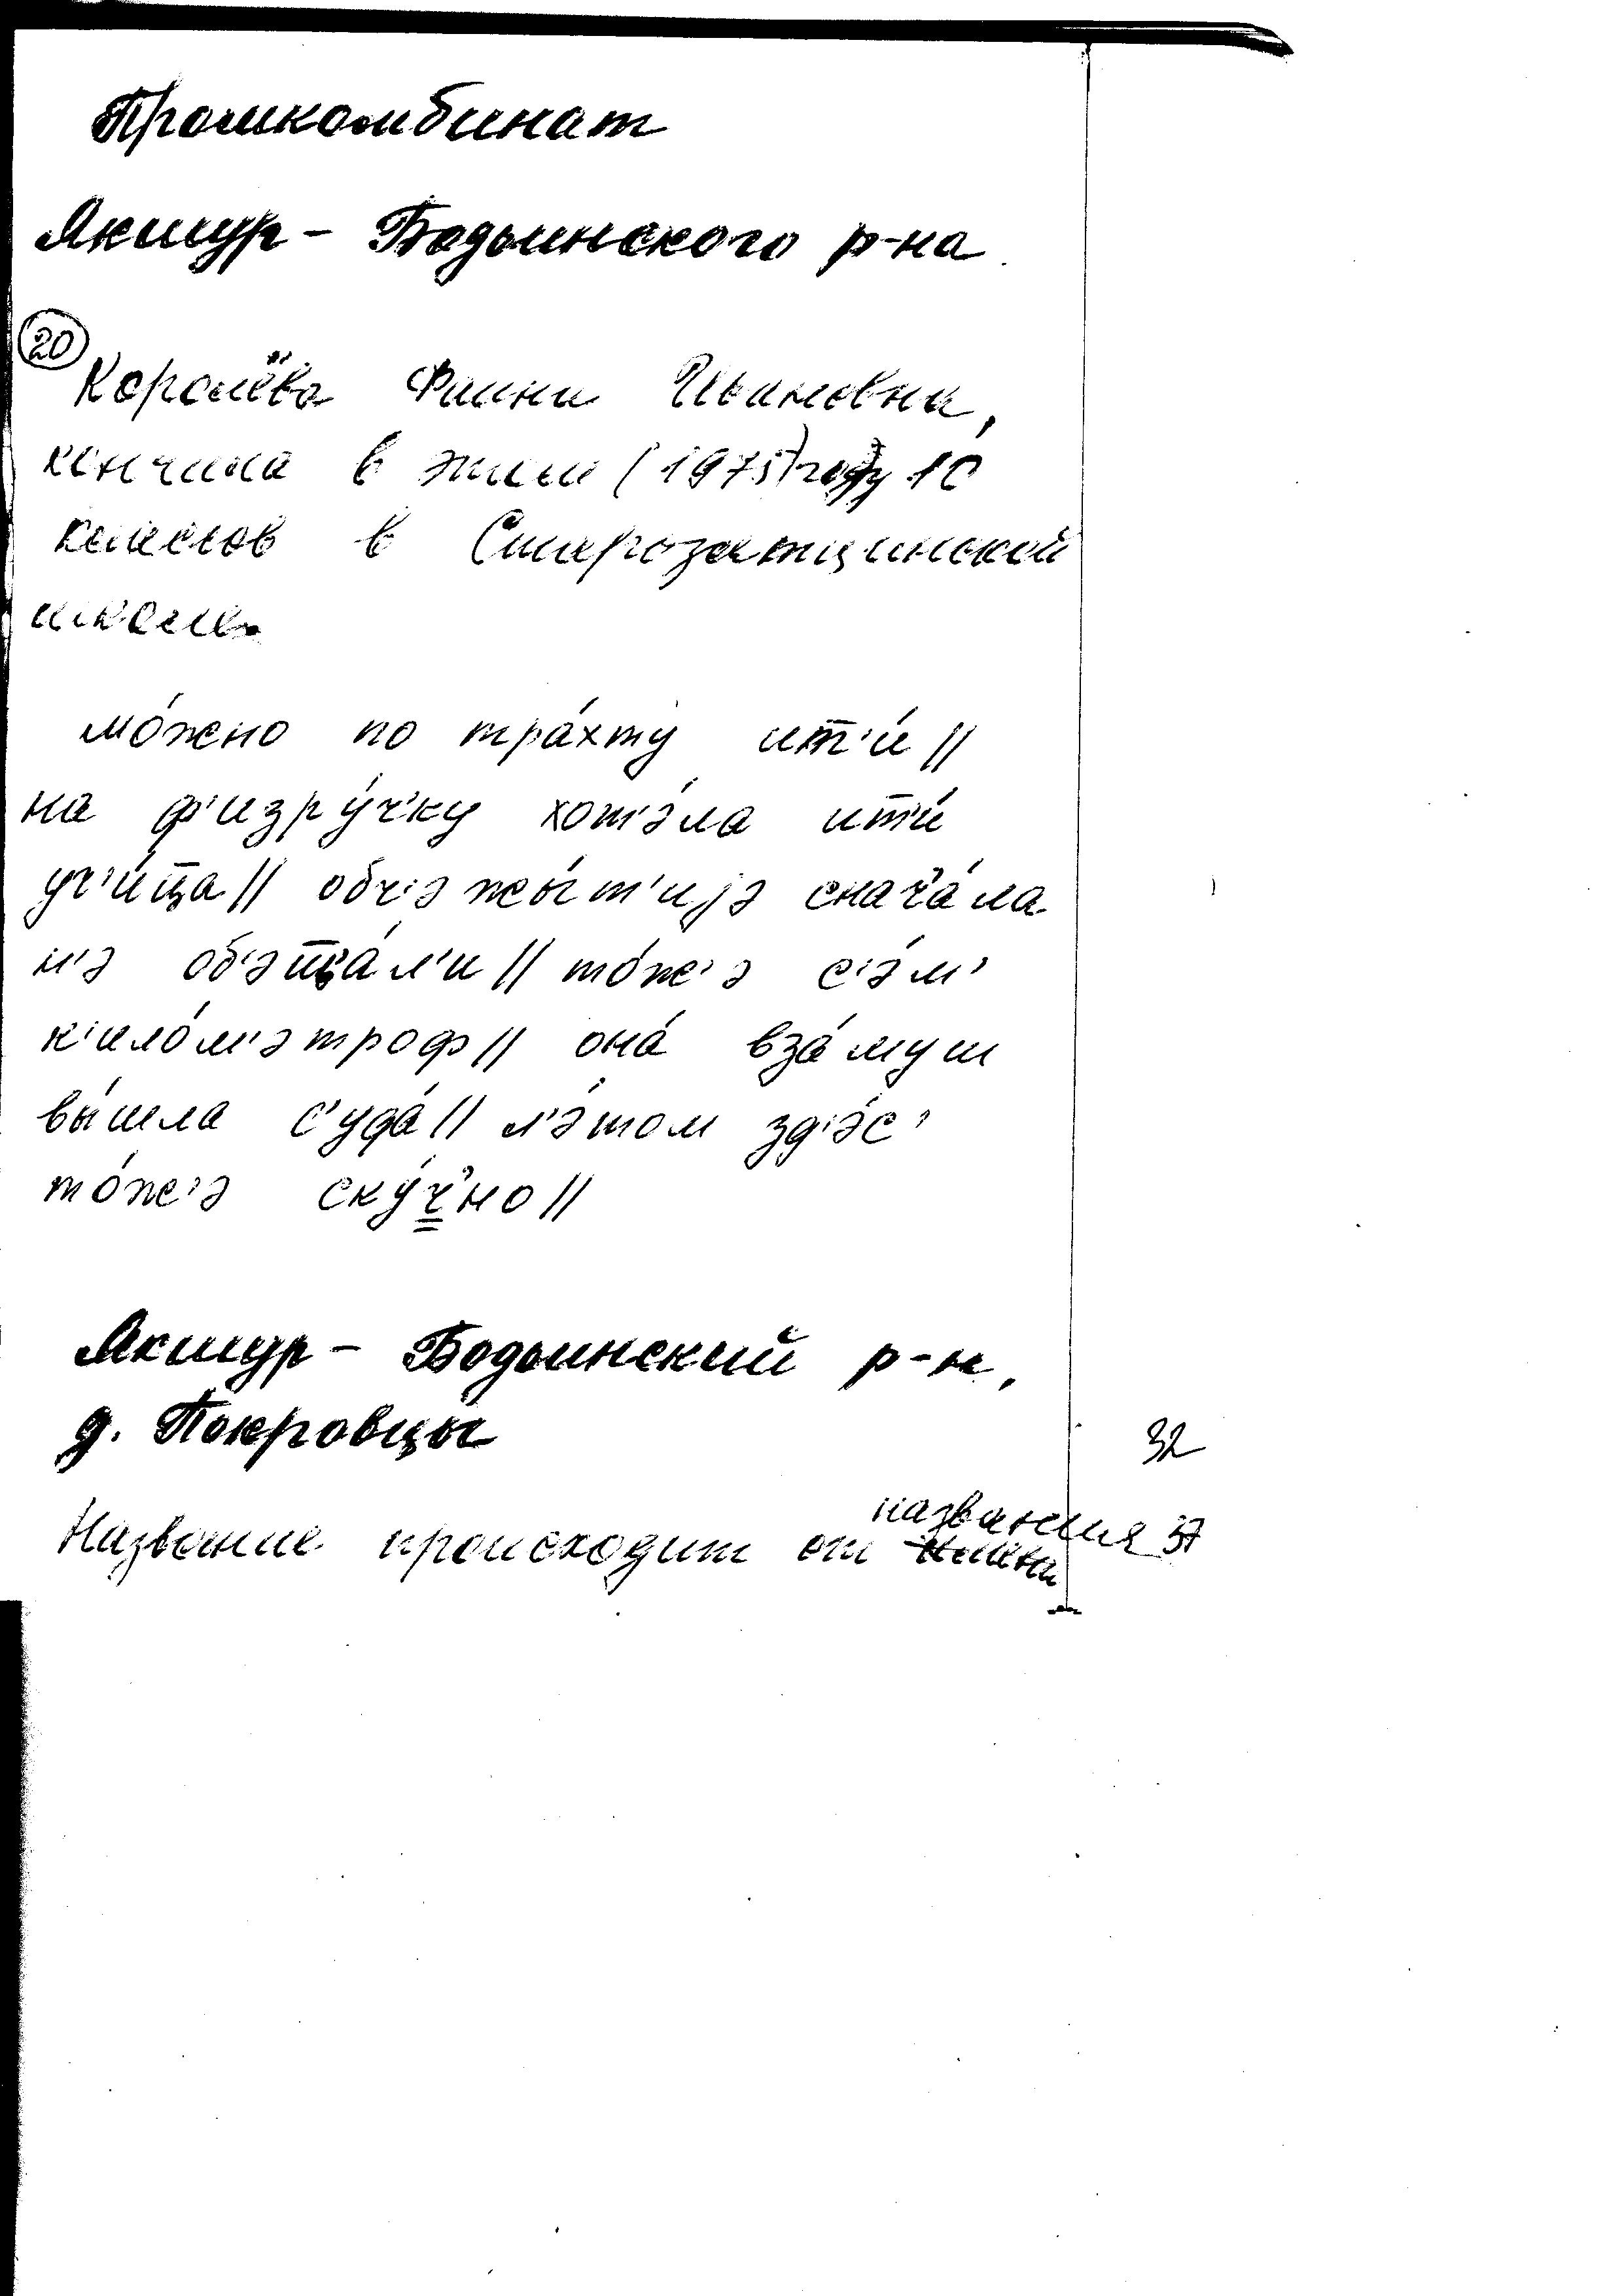 Промкомбинат
Якшур-Бодьинского р-на
20
Королёва Фаина Ивановна,
кончила в этом (1975) году 10
классов в Старозятцинской
школе.
мо́жно по тра́хту ит̄'и́ //
на ф'изру́ч'ку хот'э́ла ит̄'и́
уч'и́т̄ца // обч'эжы́т'иjэ снач'а́ла
н'э об'эщ̄а́л'и // то́ж'э с'эм'
к'ило́м'этроф // она́ вза́муш
вы́шла с'уда́ // л'э́том зд'эс'
то́ж'э ску́ч'но //
Якшур-Бодьинский р-н,
д. Покровцы
32
названия 37
Название происходит от имени